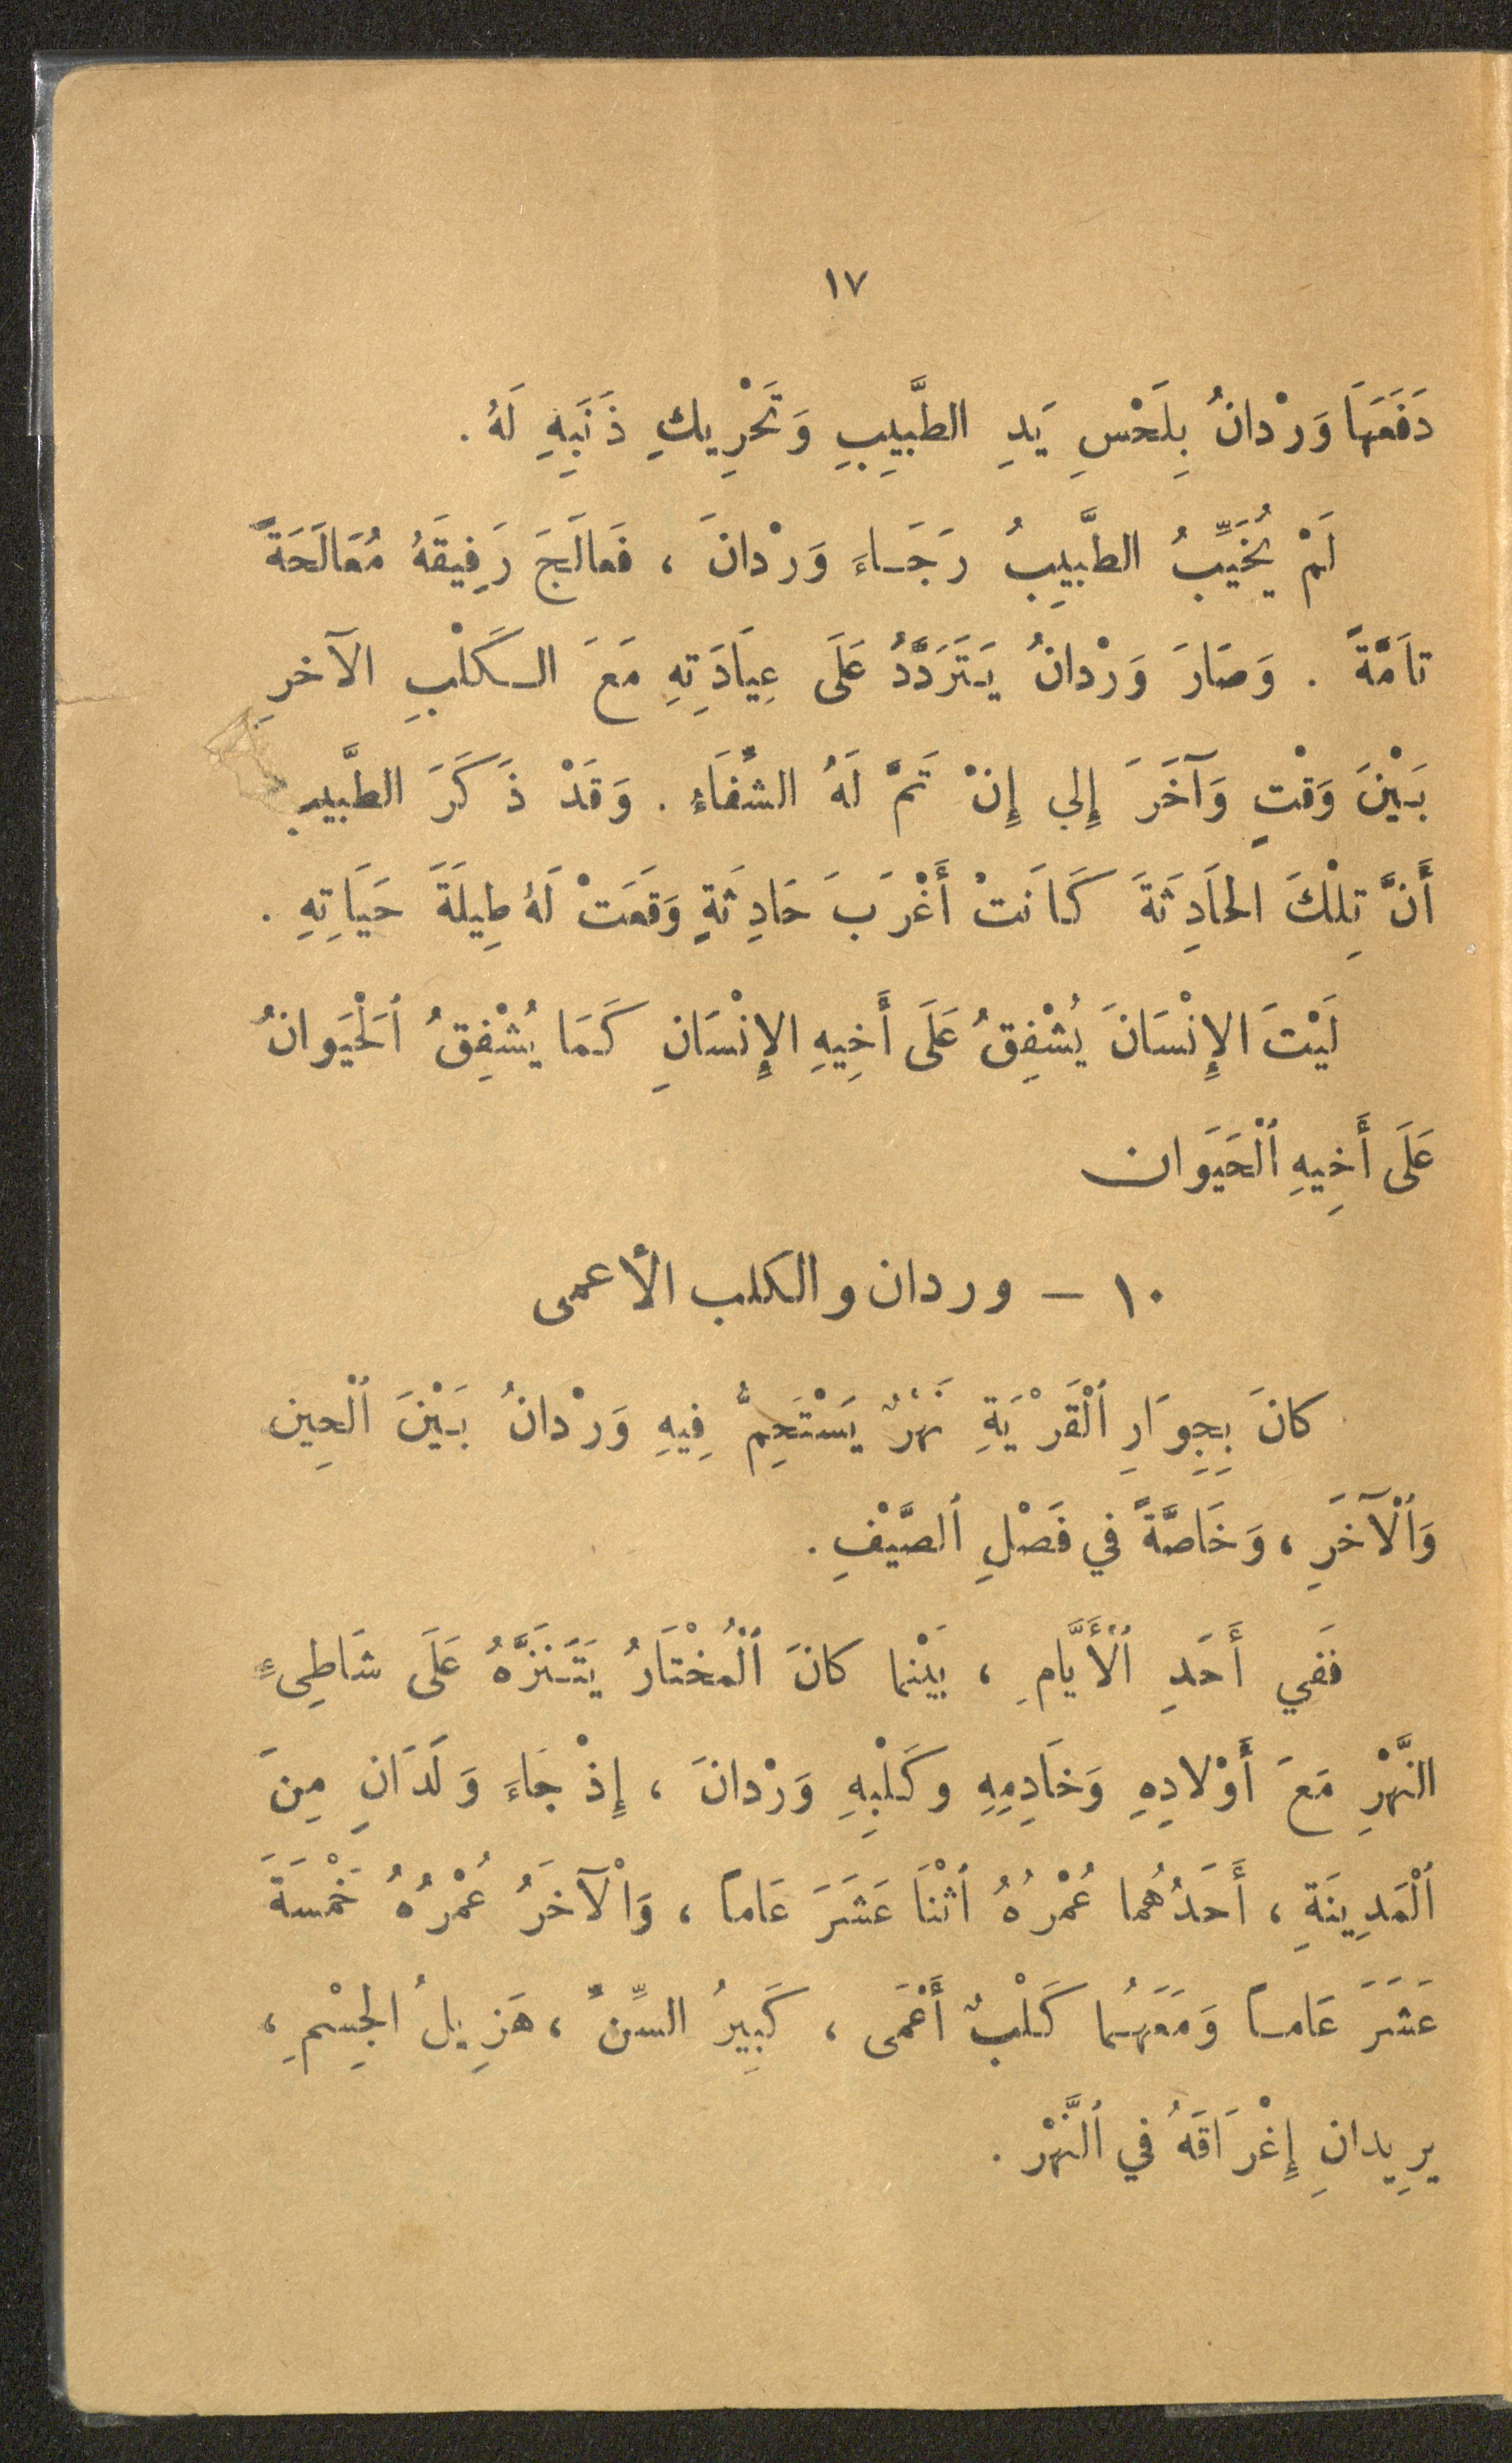 ١٧
دَفَعَهَا وَرْدانُ بِلَحْسِ يَدِ الطَّبِيبِ وَتَحْرِيكِ ذَنَبِهِ لَهُ.
لَمْ يُخَيِّبُ الطَّبِيبُ رَجَاءَ وَرْدانَ ، فَعالَجَ رَفِيقَهُ مُعَالَجَةً
تامَّةً . وَصَارَ وَرْدانُ يَتَرَدَّدُ عَلَى عِيَادَتِهِ مَعَ الكَلْبِ الآخرِ
بَيْنَ وَقْتٍ وَآخَرَ إِلي إِنْ تَمَّ لَهُ الشّفَاء . وَقَدْ ذَكَرَ الطَّبيب
أَنَّ تِلْكَ الحَادِثَةَ كَانَتْ أَغْرَبَ حَادِثَةٍ وَقَعَتْ لَهُ طِيلَةَ حَيَاتِهِ .
لَيْتَ الإِنْسَانَ يُشْفِقُ عَلَى أَخِيهِ الإِنْسَانِ كَمَا يُشْفِقُ ٱلْحَيَوانُ
عَلَى أَخِيهِ ٱلْحَيَوَان
١٠ – وردان والكلب الأعمى
كانَ بِجِوَارِ ٱلْقَرْيَةِ نَهْرٌ يَسْتَحِمُّ فِيهِ وَرْدانُ بَيْنَ ٱلْحِين
وَٱلْآخَرِ ، وَخَاصَّةً في فَصْلِ ٱلصَّيْفِ .
فَفي أَحَدِ ٱلْأَيَّامِ ، بَيْنما كانَ ٱلْمُخْتَارُ يَتَنَزَّهُ عَلَى شَاطِىءِ
النَّهْرِ مَعَ أَوْلادِهِ وَخَادِمِهِ وكَلْبِهِ وَرْدانَ ، إِذْ جَاءَ وَلَدَانِ مِنَ
ٱلْمَدِينَةِ ، أَحَدُهُما عُمْرُهُ ٱثْنَا عَشَرَ عَاماً ، وَٱلْآخَرُ عُمْرُهُ خَمْسَةَ
عَشَرَ عَاماً وَمَعَهُما كَلْبٌ أَعْمَى ، كَبِيرُ السِّنّ ، هَزِيلُ الجِسْمِ ،
يرِيدانِ إِغْرَاقَهُ في ٱلنَّهْر .